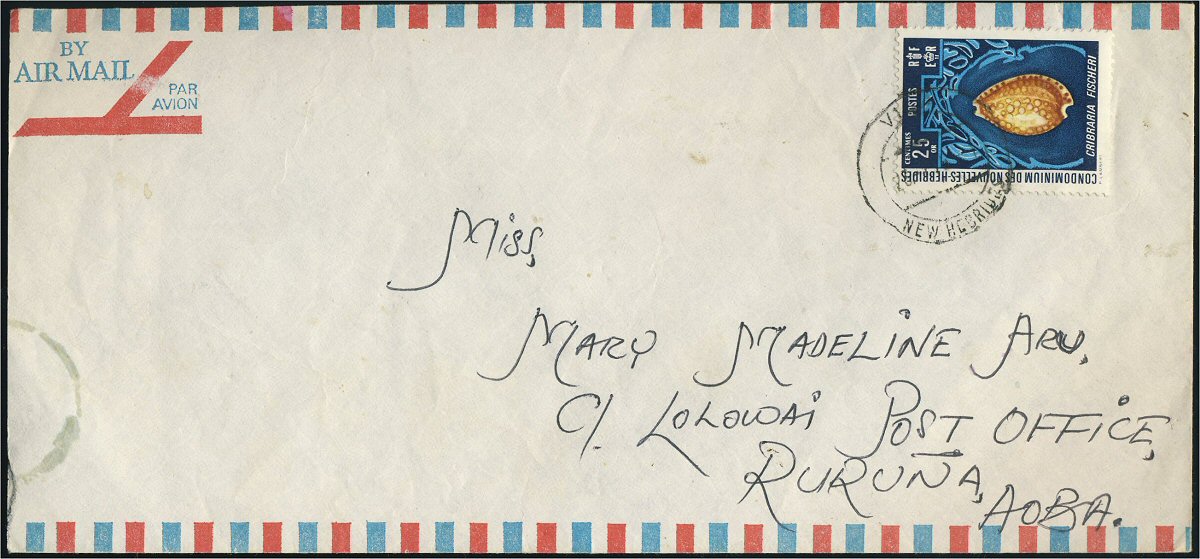 BY
AIR MAIL
PAR
AVION
RF
ER
POSTES
25
CENTIMES
OR
CRIBRARIA FISCHERI
CONDOMINIUM DES NOUVELLES-HEBRIDES
NEW HEBRIDES
Miss,
MARY MADELINE ARU,
C/. LOLOWAI POST OFFICE,
RURUNA, AOBA.